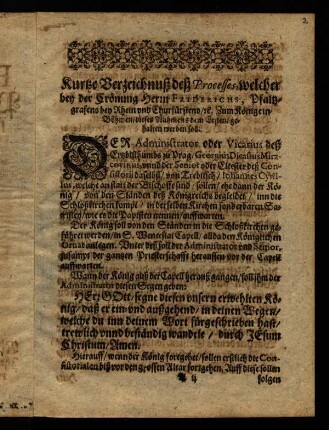 2
Kurtze Verzeichnuß deß Processes, welcher
bey der Crönung Herrn FRIDERICHS, Pfaltz-
grafens bey Rhein vnd Churfürstens/ ꝛc. Zum König in
Böhmen/ dieses Nahmens dem Ersten/ ge-
halten werden soll.
DER Administrator oder Vicarius deß
Ertzbisthumbs zu Prag/ Georgius Dicastus Mirz-
covinus/ vnd der Senior oder Elteste deß Con-
sistorij daselbst/ von Trebitsch/ Iohannes Cyril-
lus, welche an statt der Bischoffe sind/ sollen/ ehe dann der Kö-
nig/ von den Ständen deß Königreichs begleitet/ inn die
Schloßkirchen kompt/ in derselben Kirchen sonderbaren Sa-
cristey/ wie es die Papisten nennen/ auffwarten.
Der König soll von den Ständen in die Schloßkirchen ge-
führet werden/ in S. Wenceslai Capell/ allda den Königlichen
Ornat anlegen. Vnter deß soll der Administrator vnd Senior,
sampt der gantzen Priesterschafft heraussen vor der Capell
auffwarten.
Wann der König auß der Capell herauß gangen/ soll ihm der
Administrator diesen Segen geben:
HErr GOtt/ segne diesen vnsern erwehlten Kö-
nig/ daß er ein vnd außgehend/ in deinen Wegen/
welche du inn deinem Wort fürgeschrieben hast/
trewlich vnnd beständig wandele/ durch JEsum
Christum/ Amen.
Hierauff/ wenn der König fortgehet/ sollen erstlich die Con-
sistorialen biß vor den grossen Altar fortgehen. Auff diese sollen
ij
folgen